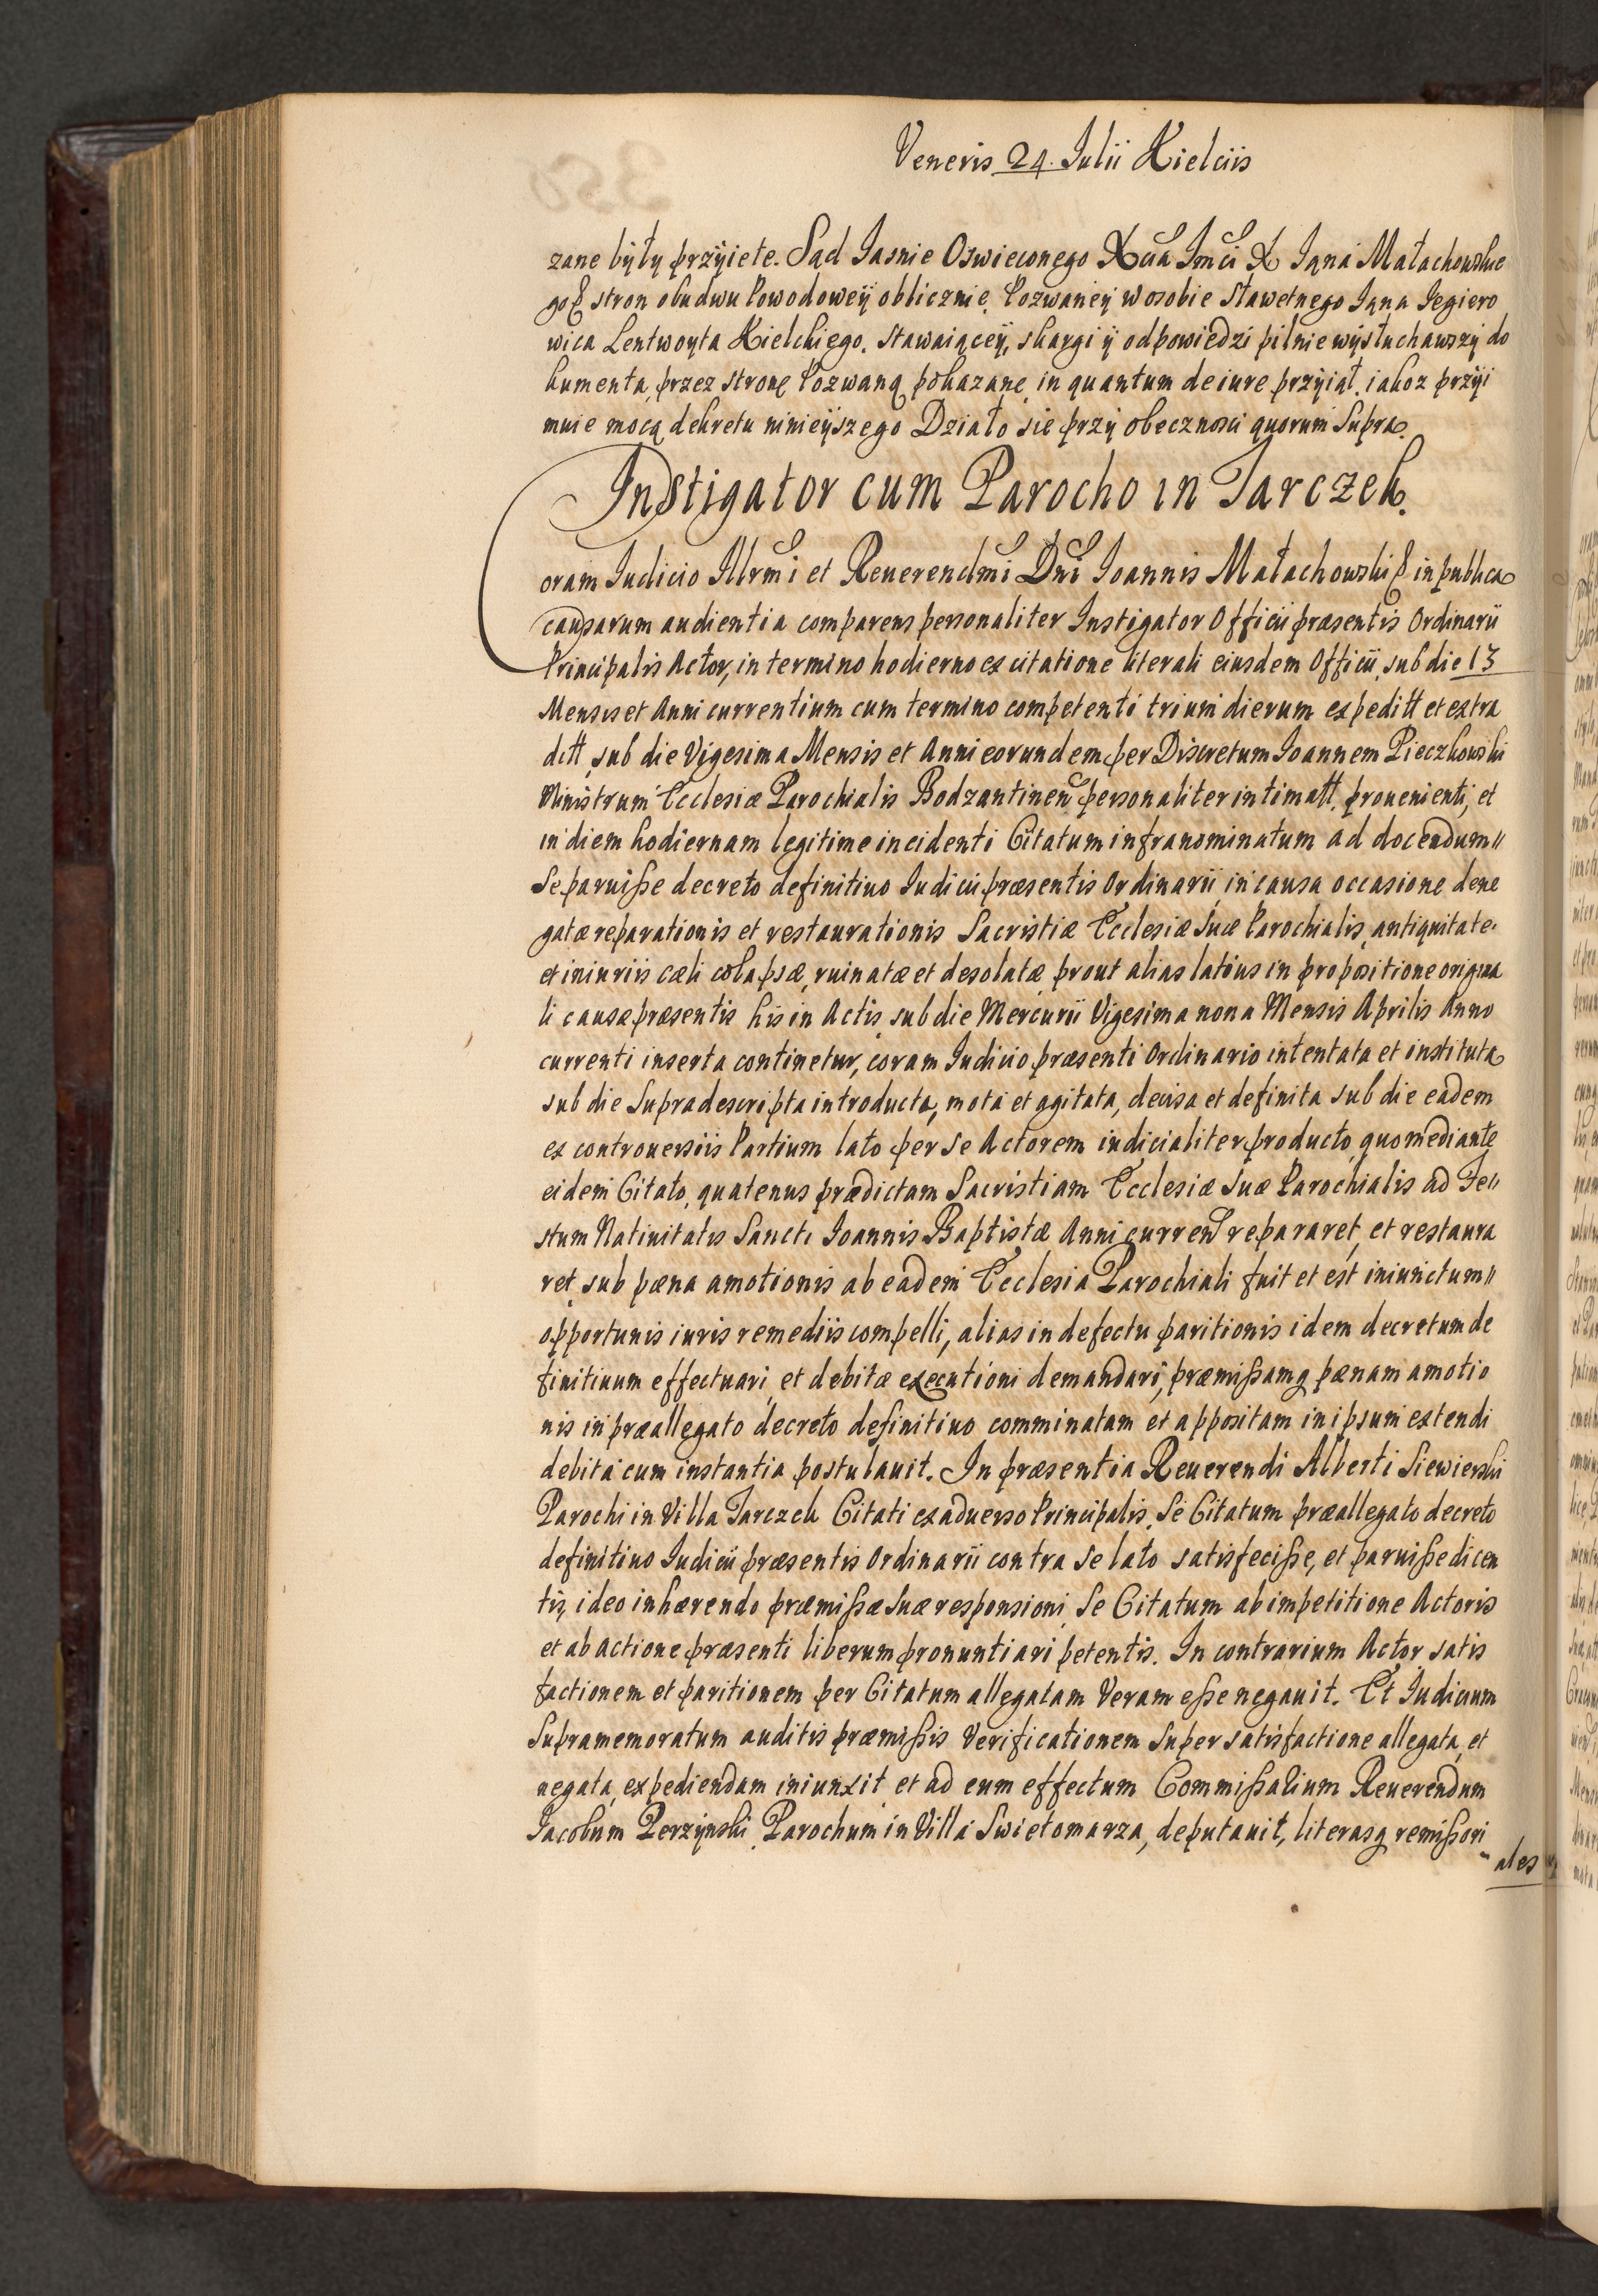 Veneris 24. Julii Kielciis
zane były przyiete. Sąd Iasnie Oswieconego Xcia Imci X Iąna Małachowskie
go & stron obudwu Powodoweÿ oblicznie, Pozwaney w osobie Sławetnego Iąna Iegiero
wica Lentwoyta Kielckiego, stawaiąceÿ, skargi ÿ odpowiedzi pilnie wysłuchawszy do
kumenta, przez stronę Pozwaną pokazane, in quantum de iure przyiął, iakoz przyi
muie mocą dekretu ninieyszego Działo sie przy obecznosci quorum Supra.
Instigator cum Parocho in Tarczek.
Coram Iudicio Illrmi et Reuerendmi Dni Ioannis Małachowski & in publica
causarum audientia comparens personaliter Instigator Officii præsentis Ordinarii
Principalis Actor, in termino hodierno ex citatione literali eiusdem Officii, sub die 13
Mensis et Anni currentium cum termino competenti trium dierum expeditt et extra
ditt, sub die Vigesima Mensis et Anni eorundem per Discretum Ioannem Pieczkowski
Ministrum Ecclesiæ Parochialis Bodzantinen personaliter intimatt, prouenienti, et
in diem hodiernam legitime incidenti Citatum infranominatum ad docendum〃
Se paruisse decreto definitiuo Iudicii præsentis Ordinarii, in causa occasione dene
gatæ reparationis et restaurationis Sacristiæ Ecclesiæ Suæ Parochialis, antiquitate
et iniuriis cæli colapsæ, ruinatæ et desolatæ prout alias latius in propositione origina
li causæ præsentis his in Actis sub die Mercurii Vigesima nona Mensis Aprilis Anno
currenti inserta continetur, coram Iudicio præsenti Ordinario intentata et instituta
sub die Supradescripta introducta, mota et agitata, decisa et definita sub die eadem
ex controuersiis Partium lato per se Actorem iudicialiter producto, quo mediante
eidem Citato, quatenus prædictam Sacristiam Ecclesiæ Suæ Parochialis ad Fe〃
stum Natiuitatis Sancti Ioannis Baptistæ Anni curren repararet, et restaura
ret, sub pæna amotionis ab eadem Ecclesia Parochiali fuit et est iniunctum〃
opportunis iuris remediis compelli, alias in defectu paritionis idem decretum de
finitiuum effectuari, et debitæ executioni demandari, præmissamq pænam amotio
nis in præallegato decreto definitiuo comminatam et appositam in ipsum extendi
debita cum instantia postulauit. In præsentia Reuerendi Alberti Siewierski
Parochi in Villa Tarczek Citati ex aduerso Principalis, Se Citatum præallegato decreto
definitiuo Iudicii præsentis Ordinarii contra se lato satisfecisse, et paruisse dicen
tis, ideo inhærendo præmissæ Suæ responsioni, Se Citatum ab impetitione Actoris
et ab actione præsenti liberum pronuntiari petentis. In contrarium Actor satis
factionem et paritionem per Citatum allegatam Veram esse negauit. Et Iudicium
Supramemoratum auditis præmissis Verificationem Super satisfactione allegata, et
negata, expediendam iniunxit et ad eum effectum Commissarium Reuerendum
Iacobum Perzynski Parochum in Villa Swietomarza, deputauit, literasq remissori
ales